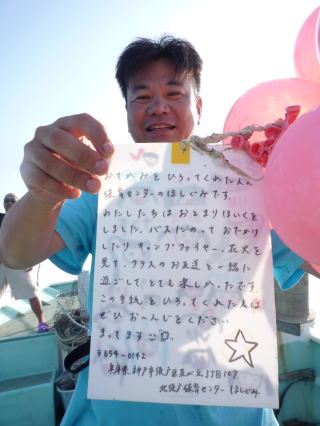 おてがみを ひろってくれた人へ
保育センターのほしぐみです。
わたしたちは おとまりほいくを
しました。バスにのって おでかけ
したり キャンプファイヤー、花火を
見て、クラスのお友達と一緒に
遊ごして とても楽しかったです
この手紙をひろってくれた人は
ぜひ おへんじをください
まってます
〒654-0142
兵庫県神戸市須磨区友が丘5丁目107
北須磨保育センター ほしぐみ